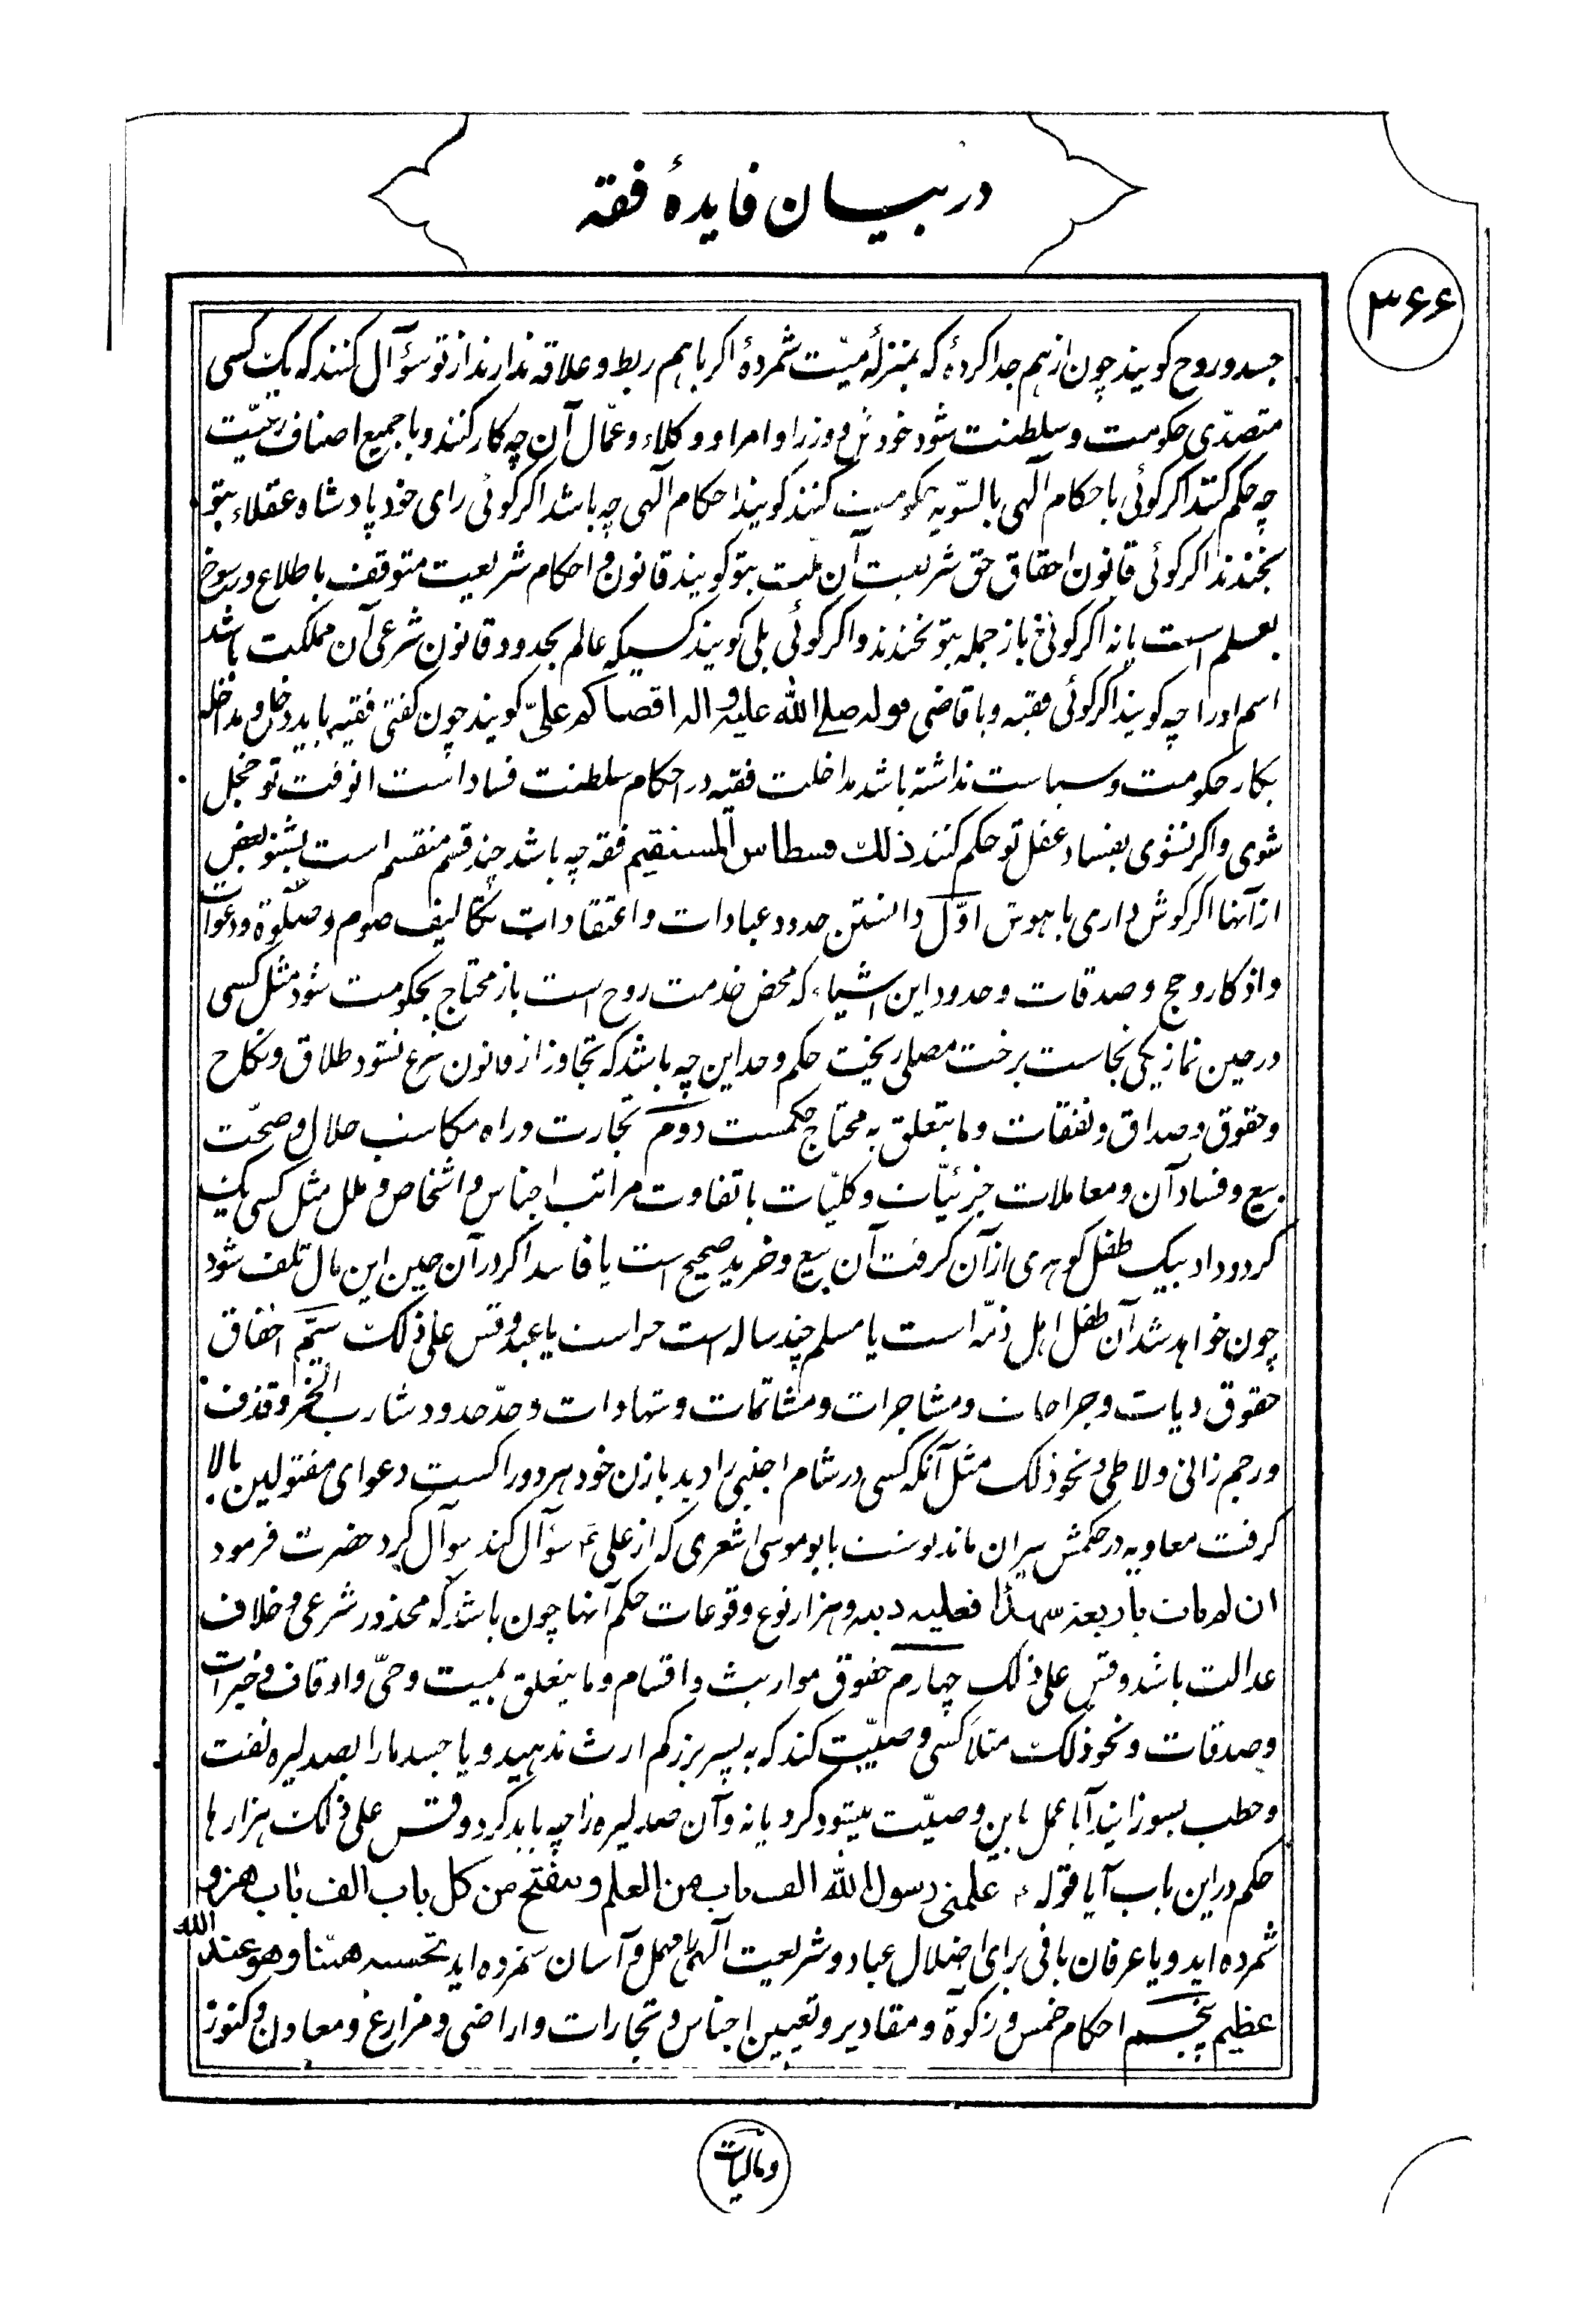 در بیان فایدهٔ فقه
۳۶۶
جسد و روح کویند چون از هم جدا کردهٔ که بمنزلهٔ میّت شمردهٔ اکر باهم ربط و علاقه ندارند از تو سؤآل کنند که یک کسی
متصدّی حکومت و سلطنت شود خودش و وزرا و امرا و وکلاء و عمّال آن چه کار کنند و با جمیع اصناف رعیّت
چه حکم کنند اکر کوئی با حکام آلهی بالسّویه حکومت کنند کویند احکام آلهی چه باشد اکر کوئی رای خود پادشاه عقلاء بتو
بخندند اکر کوئی قانون احقاق حق شریعت آن ملت بتو کویند قانون و احکام شریعت متوقف باطلاع و رسوخ
بعلم است یا نه اکر کوئی نه باز جمله بتو بخندند و اکر کوئی بلی کویند کسیکه عالم بحدود و قانون شرعی آن مملکت باشد
اسم او را چه کویند اکر کوئی فقیه و یا قاضی قوله صلی الله علیه و اله اقضاکم علیّ کویند چون کفتی فقیه باید دخل و مداخله
بکار حکومت و سیاست نداشته باشد مداخلت فقیه در احکام سلطنت فساد است انوقت تو خجل
شوی و اکر نشوی بفساد عقل تو حکم کنند ذلک قسطاس المستقیم فقه چه باشد چند قسم منقسم است بشنو بعض
از آنها اکر کوش داری با هوش اوّل دانستن حدود عبادات و اعتقادات تکالیف صوم و صلوة و دعوات
و اذکار و حج و صدقات و حدود این اشیاء که محض خدمت روح است باز محتاج بحکومت شود مثل کسی
در حین نماز یکی نجاست برخت مصلی ریخت حکم و حد این چه باشد که تجاوز از قانون شرع نشود طلاق و نکاح
و حقوق و صداق و نفقات و ما یتعلق به محتاج حکمست دوم تجارت و راه مکاسب حلال و صحّت
بیع و فساد آن و معاملات جزئیّات و کلیّات با تفاوت مراتب اجناس و اشخاص و ملل مثل کسی یک
کردو داد بیک طفل کوهری از آن کرفت آن بیع و خرید صحیح است یا فاسد اکر در آن حین این مال تلف شود
چون خواهد شد آن طفل اهل ذمّه است یا مسلم چند ساله است حر است یا عبد و قس علی ذلک سیّم احقاق
حقوق دیات و جراحات و مشاجرات و مشاتمات و شهادات و حدّ حدود شارب الخمر و قذف
و رجم زانی و لاطی و نحو ذلک مثل آنکه کسی در شام اجنبی را دید با زن خود هر دو را کشت دعوای مقتولین بالا
کرفت معاویه در حکمش حیران ماند نوشت بابو موسی اشعری که از علی ع سؤآل کند سوآل کرد حضرت فرمود
ان لم یات باربعة شهداء فعلیه دیه و هزار نوع وقوعات حکم آنها چون باشد که محذور شرعی و خلاف
عدالت باشد و قس علی ذلک چهارم حقوق مواریث و اقسام و ما یتعلق بمیت و حیّ و اوقاف و خیرات
و صدقات و نحو ذلک مثلاً کسی وصیّت کند که به پسر بزرکم ارث ندهید و یا جسد مارا بصد لیره نفت
و حطب بسوزانید آیا عمل باین وصیّت میشود کرد یا نه و آن صد لیره را چه باید کرد و قس علی ذلک هزارها
حکم در این باب آیا قوله ع علمنی رسول الله الف باب من العلم و ینفتح من کل باب الف باب هنر
شمرده اید و یا عرفان بافی برای اضلال عباد و شریعت آلهی را مهمل و آسان شمرده اید تحسبه هیّنا و هو عند الله
عظیم پنجم احکام خمس و زکوة و مقادیر و تعیین اجناس و تجارات و اراضی و مزارع و معادن و کنوز
و مالیات